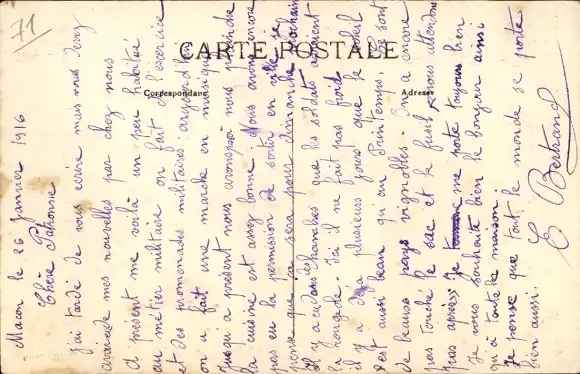 71
CARTE POSTALE
Correspondance
Adresse
Macon le 26 Janvier 1916
Chère
j'ai tardé de vous écrire mais vous devez
avoir de mes nouvelles par chez nous
à présent me voilà un peu habitué
au métier militaire on fait de l'exercice
et des promenades militaires. aujourd'hui
on a fait une marche en musique
jusqu'a présent nous avons pas à nous plaindre
la cuisine est assez bonne. Nous avons encore
pas eu la permission de sortir en ville je
pense que ça sera pour dimanche prochain
Il y a eu dans des chambres que les soldats avaient
la rougeole. Ici il ne fait pas froid
il y a déjà plusieurs jours que le soleil
est aussi beau qu'au Printemps. Ce sont
de beaux pays vignobles. On a encore
pas touché le sac et le fusil nous attendons
pas après. Je me porte toujours bien
je vous souhaite bien le bonjour ainsi
qu'à toute la maison.
Je pense que tout le monde se porte
bien aussi.
E Bertrand